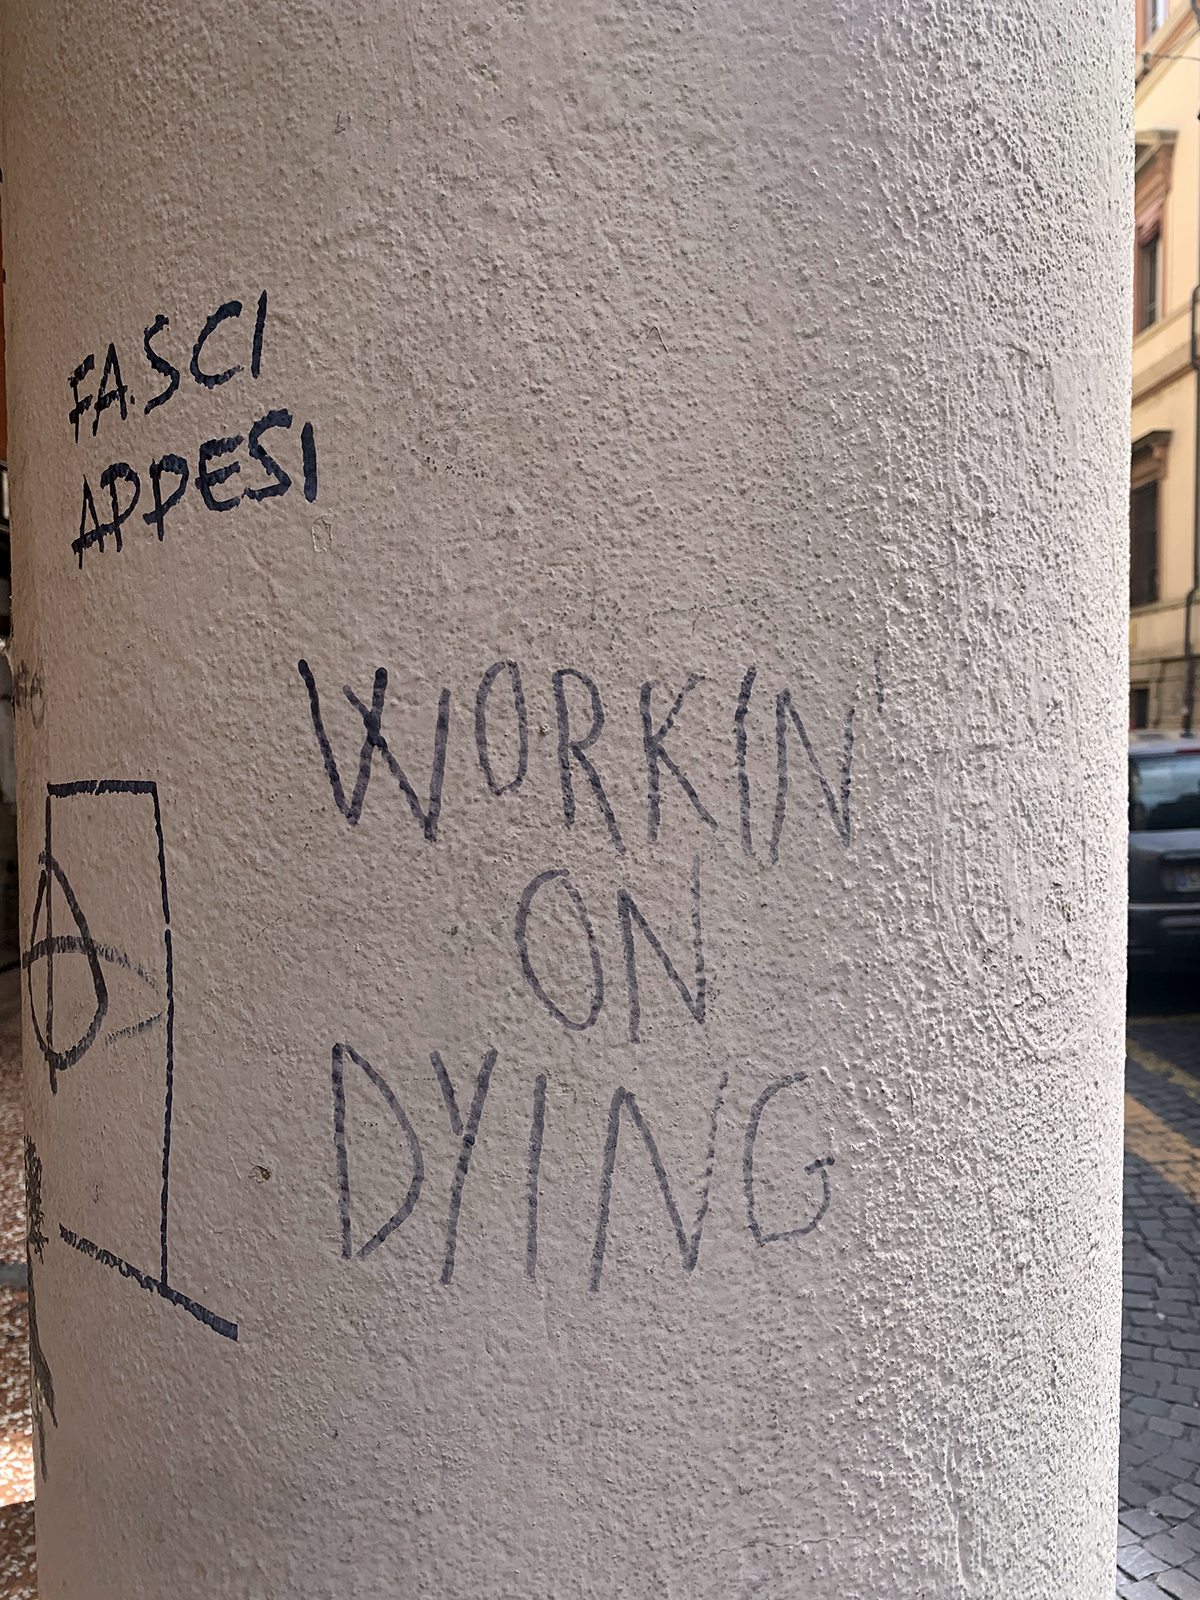 FASCI
APPESI
WORKIN'
ON
DYING